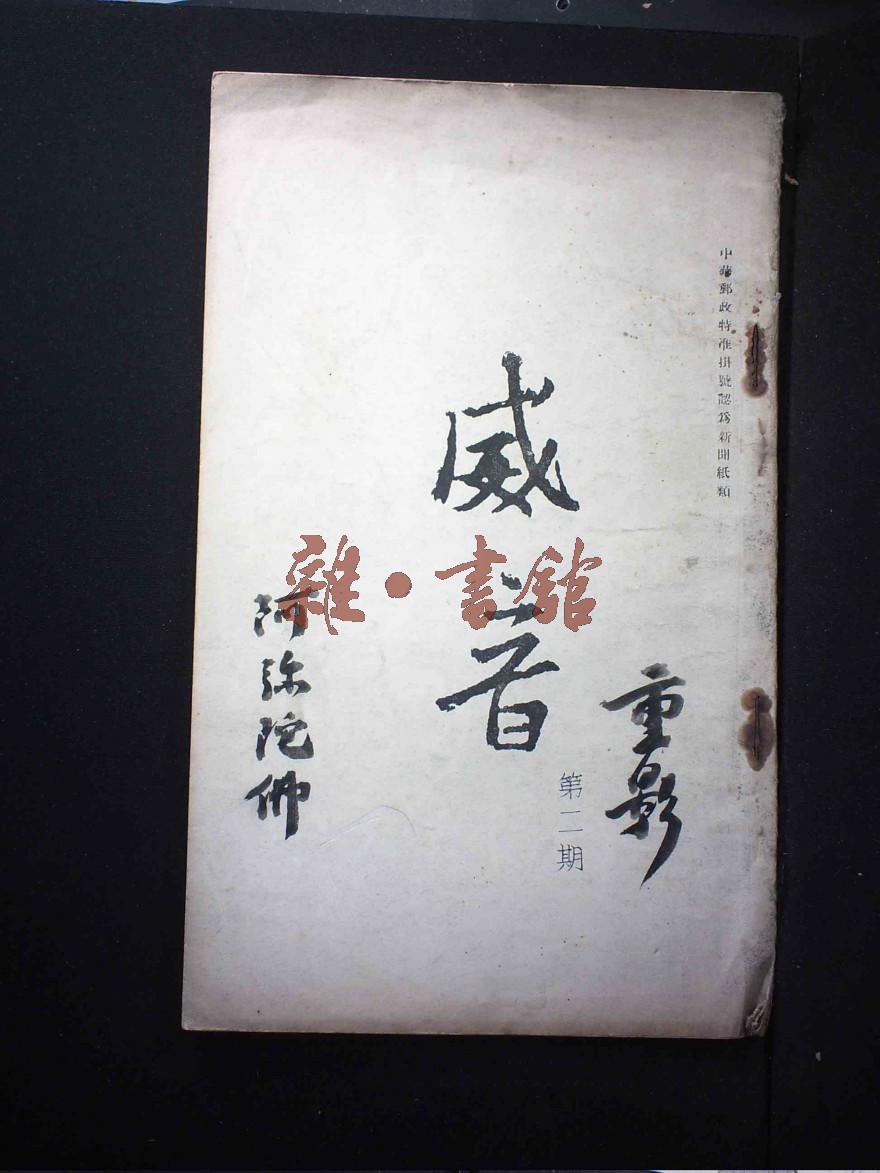 中華郵政特准掛號認為新聞紙類
重影
第二期
威音
阿彌陀佛
雜·書館